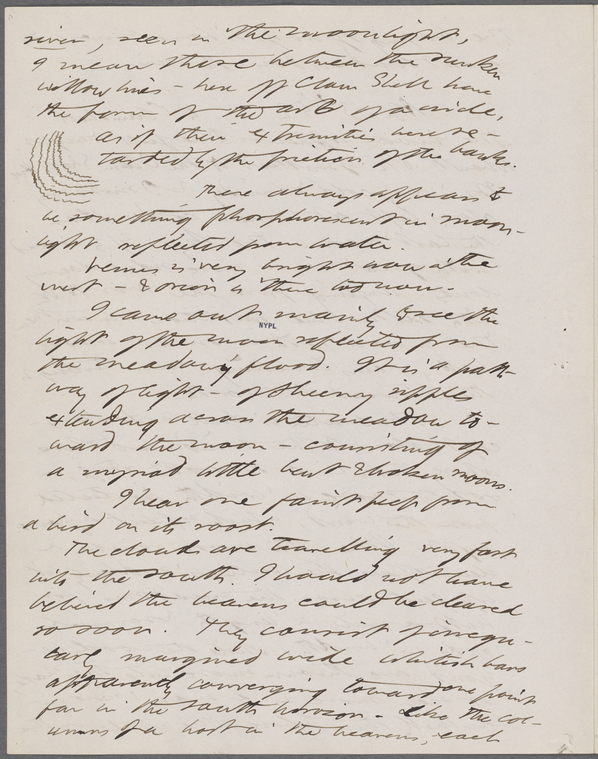 river, seen in the moonlight,
I mean those between the sunken
willow lines – here off Clam Shell have
the form of the arc of a circle,
as if their extremities were re-
tarded by the friction of the banks.
There always appears to
be something phosphorescent in moon-
light reflected from water.
Venus is very bright now in the
west – & Orion is there too now.
I came out mainly to see the
light of the moon reflected from
NYPL
the meadowy flood. It is a path-
way of light – of sheeny ripples
extending across the meadow to-
ward the moon – consisting of
a myriad little bent & broken moons.
I hear one faint peep from
a bird on its roost.
The clouds are travelling very fast
into the south. I would not have
believed the heavens could be cleared
so soon. They consist of irregu-
larly margined wide whitish bars
apparently converging toward one point
far in the south horizon. Like the col-
umns of a host in the heavens, each